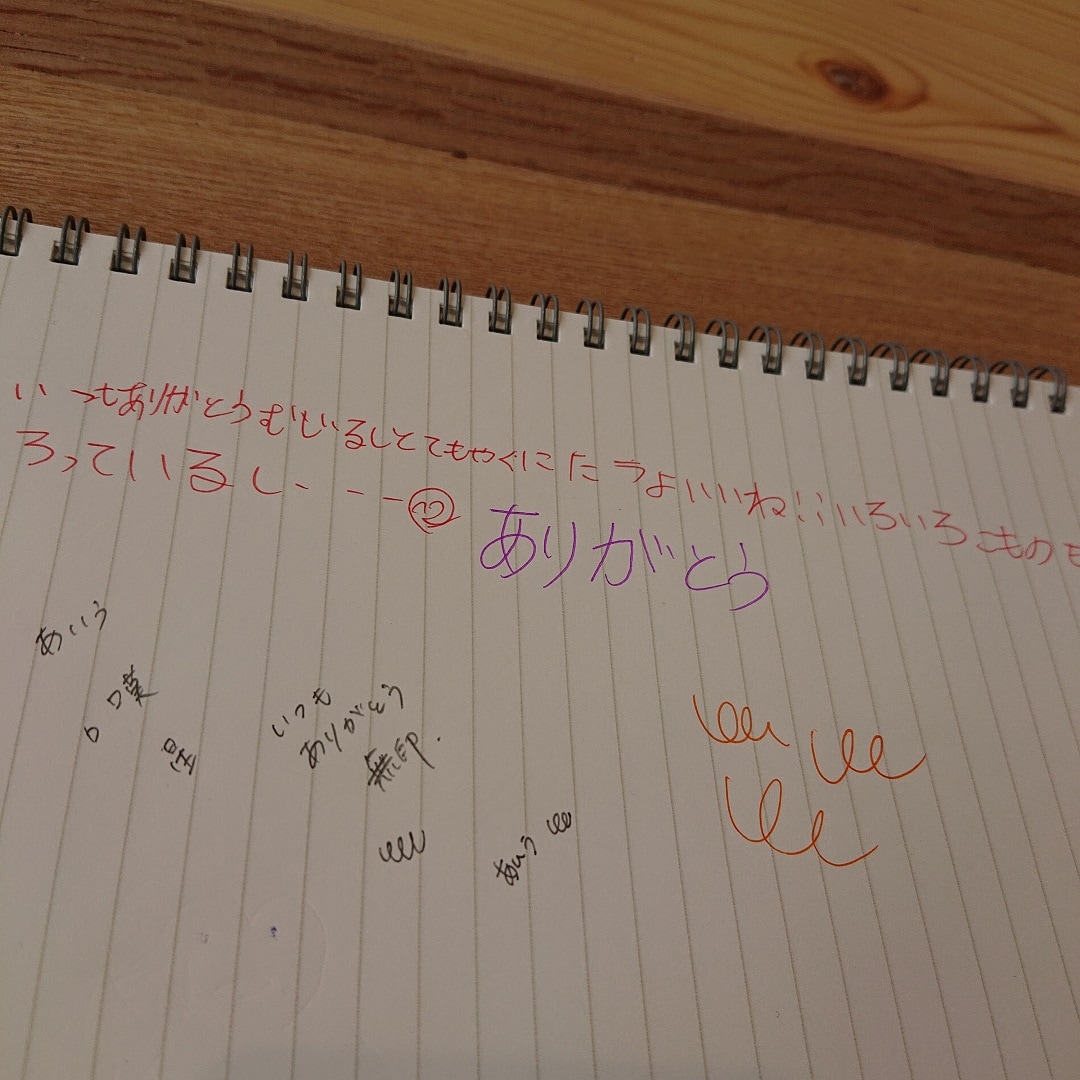 いつもありがとうむじるしとてもやくにたうよいいね!!いろいろものも
ろっているし・---
ありがとう
あいう
いつも
ありがとう
無印.
あいう